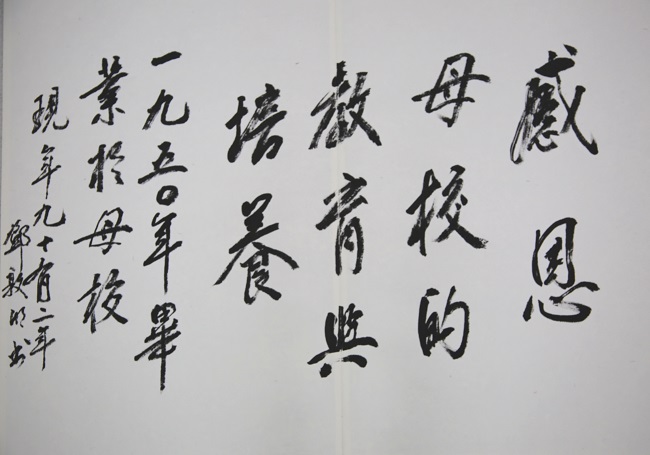 感恩
母校的
教育與
培養
一九五〇年畢
業於母校
現年九十有二年
鄭敦书